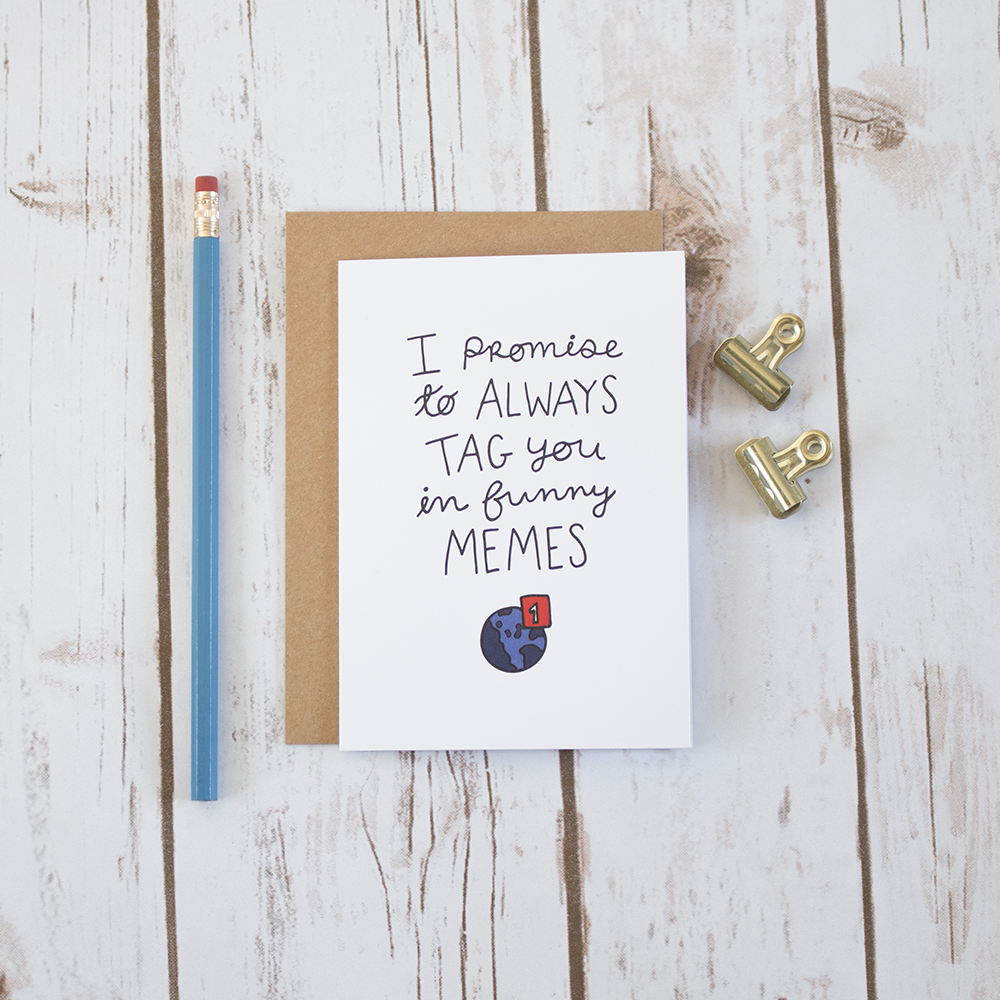 I promise
to ALWAYS
TAG you
in funny
MEMES
1